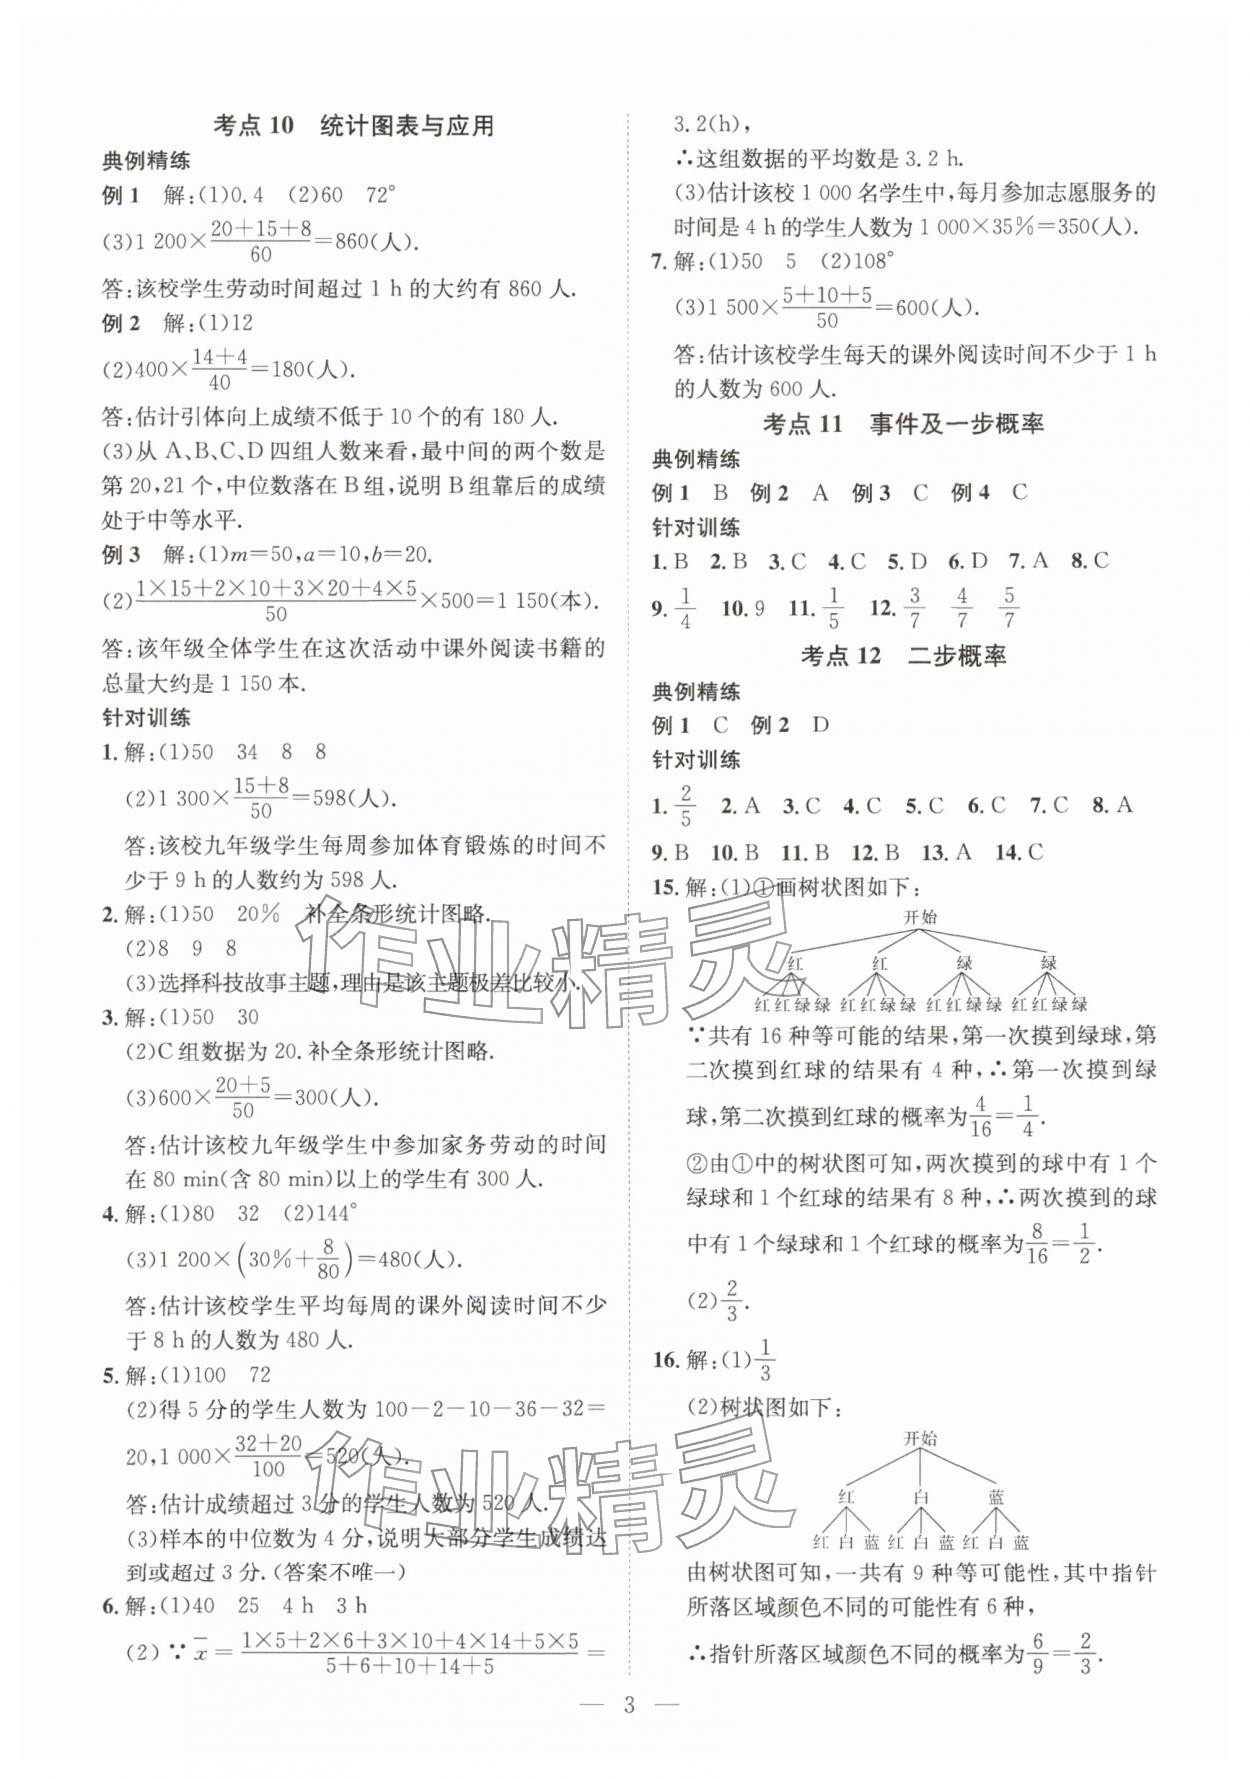 考点 10 统计图表与应用
典例精练
例 1 解:(1)0.4 (2)60 72°
(3)1 200×\frac{20+15+8}{60}=860(人).
答:该校学生劳动时间超过 1 h 的大约有 860 人.
例 2 解:(1)12
(2)400×\frac{14+4}{40}=180(人).
答:估计引体向上成绩不低于 10 个的有 180 人.
(3)从 A、B、C、D 四组人数来看,最中间的两个数是
第 20,21 个,中位数落在 B 组,说明 B 组靠后的成绩
处于中等水平.
例 3 解:(1)m=50,a=10,b=20.
(2)\frac{1×15+2×10+3×20+4×5}{50}×500=1 150(本).
答:该年级全体学生在这次活动中课外阅读书籍的
总量大约是 1 150 本.
针对训练
1. 解:(1)50 34 8 8
(2)1 300×\frac{15+8}{50}=598(人).
答:该校九年级学生每周参加体育锻炼的时间不
少于 9 h 的人数约为 598 人.
2. 解:(1)50 20% 补全条形统计图略.
(2)8 9 8
(3)选择科技故事主题,理由是该主题极差比较小.
3. 解:(1)50 30
(2)C 组数据为 20. 补全条形统计图略.
(3)600×\frac{20+5}{50}=300(人).
答:估计该校九年级学生中参加家务劳动的时间
在 80 min(含 80 min)以上的学生有 300 人.
4. 解:(1)80 32 (2)144°
(3)1 200×(30%+\frac{8}{80})=480(人).
答:估计该校学生平均每周的课外阅读时间不少
于 8 h 的人数为 480 人.
5. 解:(1)100 72
(2)得 5 分的学生人数为 100-2-10-36-32=
20,1 000×\frac{32+20}{100}=520(人).
答:估计成绩超过 3 分的学生人数为 520 人.
(3)样本的中位数为 4 分,说明大部分学生成绩达
到或超过 3 分.(答案不唯一)
6. 解:(1)40 25 4 h 3 h
(2)∵\overline{x}=\frac{1×5+2×6+3×10+4×14+5×5}{5+6+10+14+5}=
3.2(h),
∴这组数据的平均数是 3.2 h.
(3)估计该校 1 000 名学生中,每月参加志愿服务的
时间是 4 h 的学生人数为 1 000×35%=350(人).
7. 解:(1)50 5 (2)108°
(3)1 500×\frac{5+10+5}{50}=600(人).
答:估计该校学生每天的课外阅读时间不少于 1 h
的人数为 600 人.
考点 11 事件及一步概率
典例精练
例 1 B 例 2 A 例 3 C 例 4 C
针对训练
1. B 2. B 3. C 4. C 5. D 6. D 7. A 8. C
9. \frac{1}{4} 10. 9 11. \frac{1}{5} 12. \frac{3}{7} \frac{4}{7} \frac{5}{7}
考点 12 二步概率
典例精练
例 1 C 例 2 D
针对训练
1. \frac{2}{5} 2. A 3. C 4. C 5. C 6. C 7. C 8. A
9. B 10. B 11. B 12. B 13. A 14. C
15. 解:(1)①画树状图如下:
开始
红 红 绿 绿
红红绿绿 红红绿绿 红红绿绿 红红绿绿
∵共有 16 种等可能的结果,第一次摸到绿球,第
二次摸到红球的结果有 4 种,∴第一次摸到绿
球,第二次摸到红球的概率为\frac{4}{16}=\frac{1}{4}.
②由①中的树状图可知,两次摸到的球中有 1 个
绿球和 1 个红球的结果有 8 种,∴两次摸到的球
中有 1 个绿球和 1 个红球的概率为\frac{8}{16}=\frac{1}{2}.
(2)\frac{2}{3}.
16. 解:(1)\frac{1}{3}
(2)树状图如下:
开始
红 白 蓝
红 白 蓝 红 白 蓝 红 白 蓝
由树状图可知,一共有 9 种等可能性,其中指针
所落区域颜色不同的可能性有 6 种,
∴指针所落区域颜色不同的概率为\frac{6}{9}=\frac{2}{3}.
— 3 —
作业精灵
作业精灵